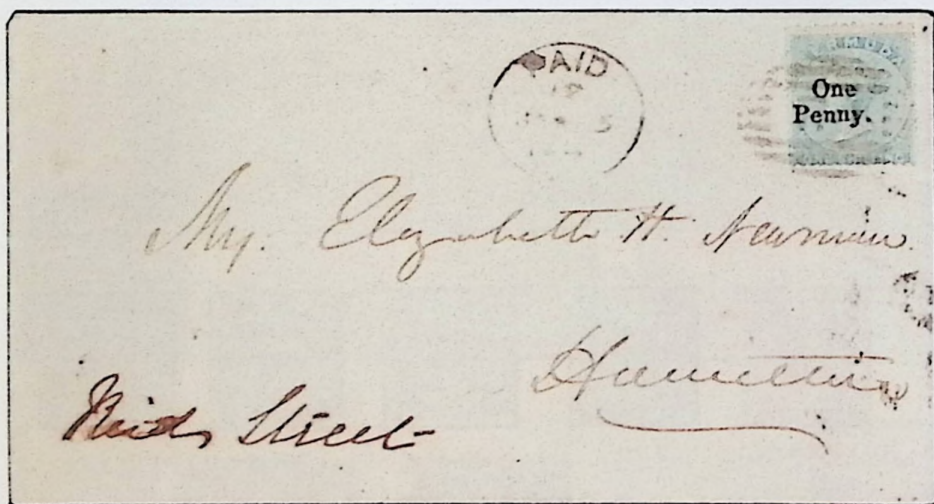 PAID
One
Penny.
Elizabeth H. Newman
Hamilton
Reids Street